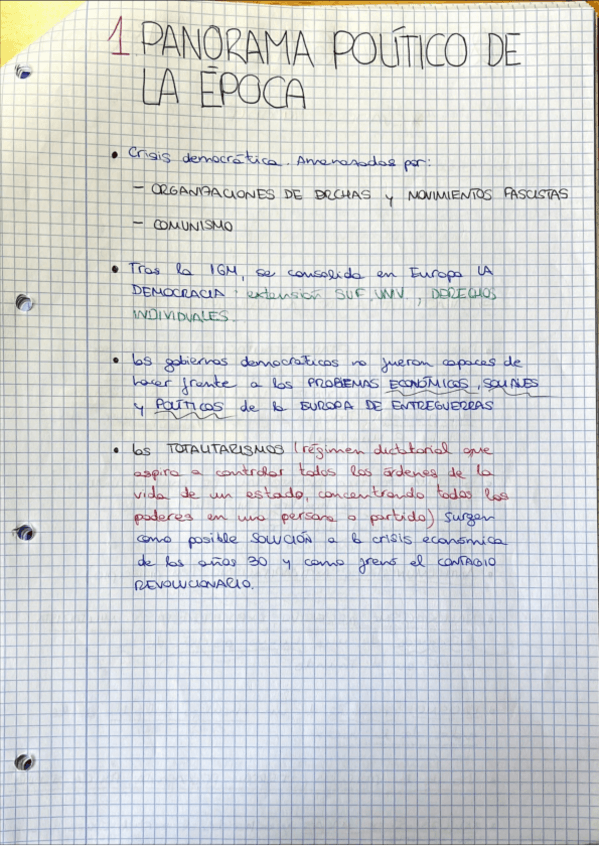 1 PANORAMA POLÍTICO DE
LA ÉPOCA
• Crisis democrática. Amenazadas por:
– ORGANIZACIONES DE DRCHAS y MOVIMIENTOS FASCISTAS
– COMUNISMO
• Tras la IGM, se consolida en Europa LA
DEMOCRACIA: extensión SUF. UNIV., DERECHOS
INDIVIDUALES.
• Los gobiernos democráticos no fueron capaces de
hacer frente a los PROBLEMAS ECONÓMICOS, SOCIALES
y POLÍTICOS de la EUROPA DE ENTREGUERRAS
• Los TOTALITARISMOS (régimen dictatorial que
aspira a controlar todos los órdenes de la
vida de un estado, concentrando todos los
poderes en una persona o partido) surgen
como posible SOLUCIÓN a la crisis económica
de los años 30 y como freno el CONTAGIO
REVOLUCIONARIO.